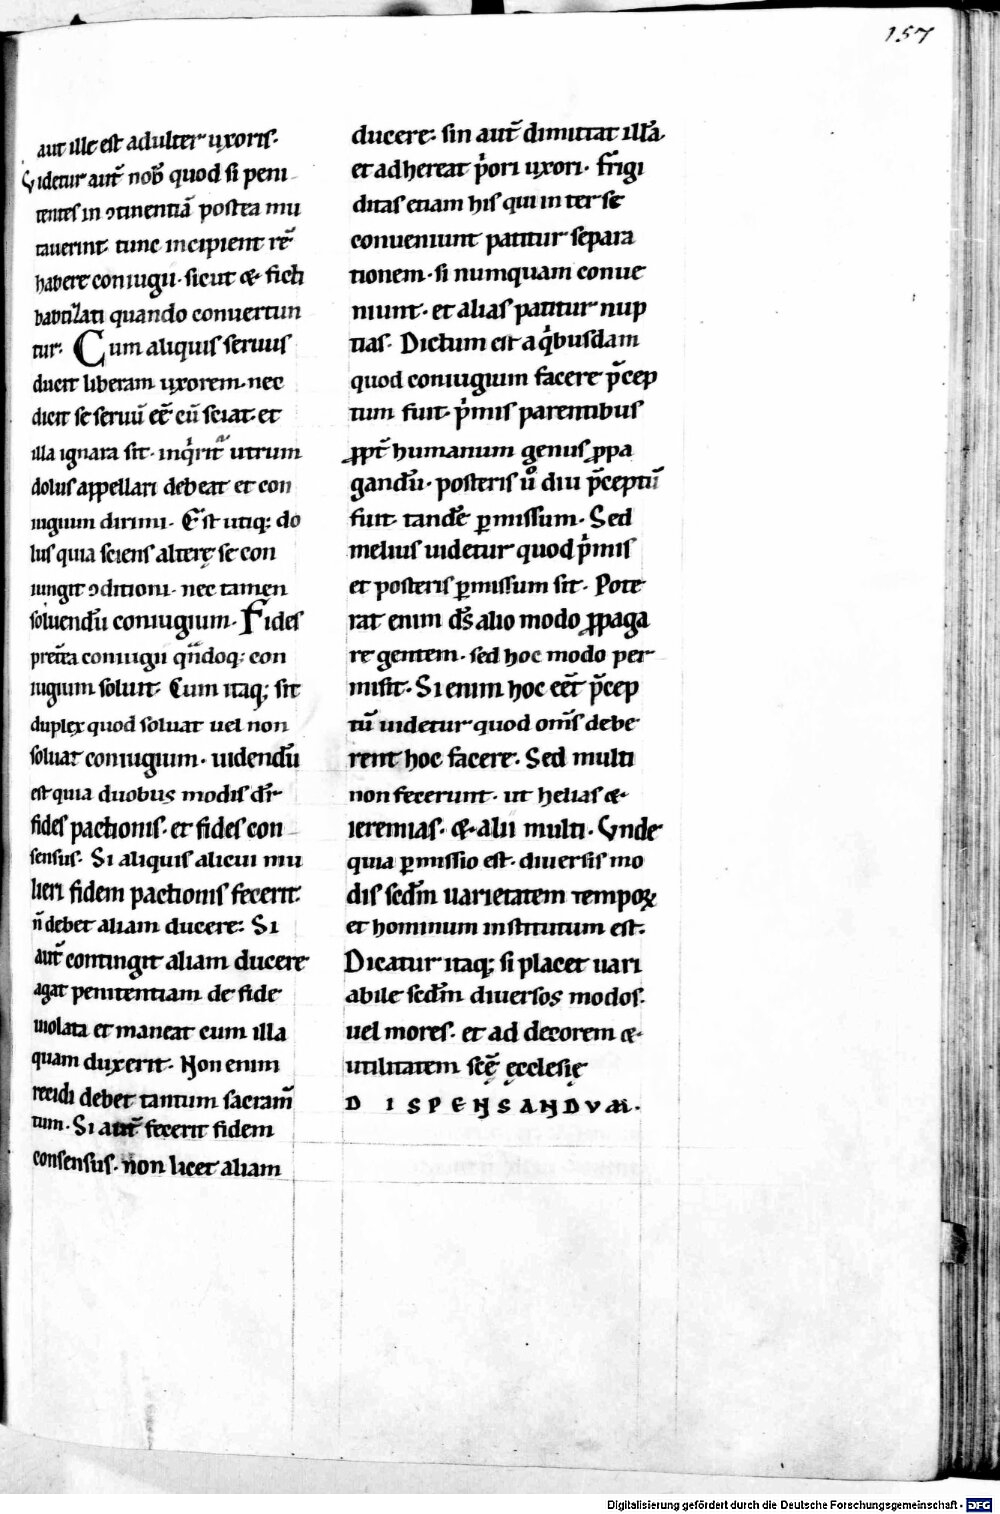 157
aut ille est adulter uxoris.
Videtur aut̄ nob̄ quod si peni
tentes in ↄtinentiā postea mu
tauerint. tunc incipient rē
habere coniugii. sicut & ficti
baptizati quando conuertun
tur. Cum aliquis seruus
ducit liberam uxorem. nec
dicit se seruū eē cū sciat. et
illa ignara sit. inqͥrit᷑ utrum
dolus appellari debeat et con
iugium dirimi. Est utiq; do
lus quia sciens alterę se con
iungit ↄditioni. nec tamen
soluendū coniugium. Fides
pret̄ea coniugii qn̄doq; con
iugium soluit. Cum itaq; sit
duplex quod soluat uel non
soluat coniugium. uidendū
est quia duobus modis dr̄
fides pactionis. et fides con
sensus. Si aliquis alicui mu
lieri fidem pactionis fecerit.
n̄ debet aliam ducere: Si
aut̄ contingit aliam ducere
agat penitentiam de fide
uiolata et maneat cum illa
quam duxerit. Non enim
recidi debet tantum sacram̄
tum. Si aut̄ fecerit fidem
consensus. non licet aliam
ducere: sin aut̄ dimittat illā.
et adhereat pͥori uxori. frigi
ditas etiam his qui inter se
conueniunt patitur separa
tionem. si numquam conue
niunt. et alias patitur nup
tias. Dictum est a qͥbusdam
quod coniugium facere p̄cep
tum fuit pͥmis parentibus
ꝓpt̄ humanum genus ꝓpa
gandū. posteris uͦ diu p̄ceptū
fuit. tandē ꝑmissum. Sed
melius uidetur quod pͥmis
et posteris ꝑmissum sit. Pote
rat enim ds̄ alio modo ꝓpaga
re gentem. sed hoc modo per
misit. Si enim hoc eēt p̄cep
tū uidetur quod om̄s debe
rent hoc facere. Sed multi
non fecerunt. ut helias &
ieremias. & alii multi. Vnde
quia ꝑmissio est. diuersis mo
dis scdm̄ uarietatem tempoꝝ
et hominum institutum est.
Dicatur itaq; si placet uari
abile scdm̄ diuersos modos.
uel mores. et ad decorem &
utilitatem scę̄ ęcclesię
DISPENSANDVM.
Digitalisierung gefördert durch die Deutsche Forschungsgemeinschaft - DFG